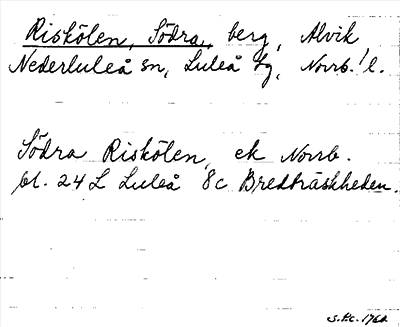 Riskölen, Södra, berg, Alvik
Nederluleå sn, Luleå tg, Norrb. l.
Södra Riskölen, ek Norrb.
bl. 24 L Luleå 8c Bredträskheden.